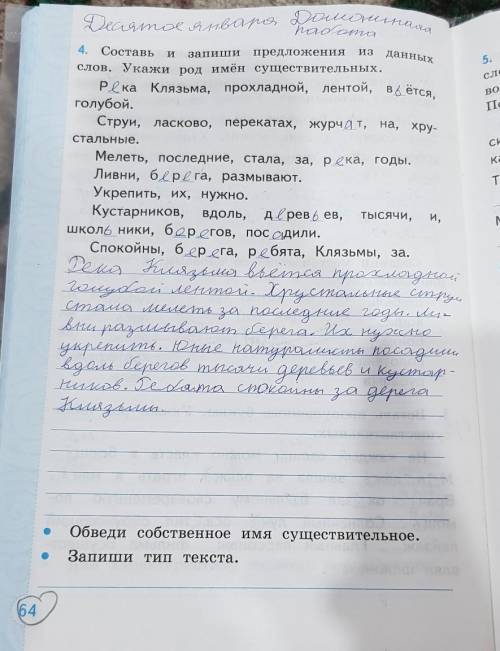 Десятое января Домашняя
работа
4. Составь и запиши предложения из данных
слов. Укажи род имён существительных.
Река Клязьма, прохладной, лентой, вьётся,
голубой.
Струи, ласково, перекатах, журчат, на, хру-
стальные.
Мелеть, последние, стала, за, река, годы.
Ливни, берега, размывают.
Укрепить, их, нужно.
Кустарников, вдоль, деревьев, тысячи, и,
школьники, берегов, посадили.
Спокойны, берега, ребята, Клязьмы, за.
Река Клязьма вьётся прохладной
голубой лентой. Хрустальные струи
стала мелеть за последние годы. Ли-
вни размывают берега. Их нужно
укрепить. Юные натуралисты посадили
вдоль берегов тысячи деревьев и кустар-
ников. Ребята спокойны за берега
Клязьмы.
Обведи собственное имя существительное.
Запиши тип текста.
64
5.